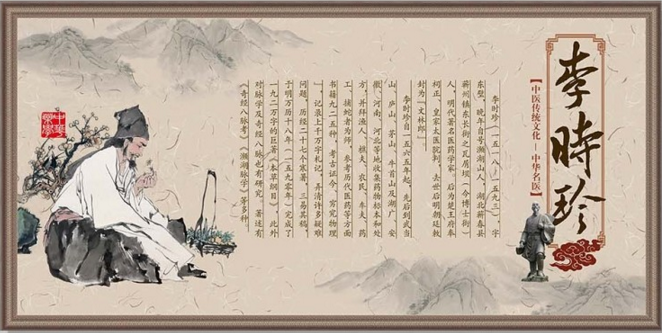 李時珍
【中医传统文化－中华名医】
李时珍（一五一八／一五九三），字
东璧，晚年自号濒湖山人，湖北蕲春县
蕲州镇东长街之瓦屑坝（今博士街）
人，明代著名医药学家。后为楚王府奉
祠正、皇家太医院判，去世后明朝廷敕
封为“文林郎”。
李时珍自一五六五年起，先后到武当
山、庐山、茅山、牛首山及湖广、安
徽、河南、河北等地收集药物标本和处
方，并拜渔人、樵夫、农民、车夫、药
工、捕蛇者为师，参考历代医药等方面
书籍九二五种，考古证今、穷究物理
”，记录上千万字札记，弄清许多疑难
问题，历经二十七个寒暑，三易其稿，
于明万历十八年（一五九零年）完成了
一九二万字的巨著《本草纲目》，此外
对脉学及奇经八脉也有研究。著述有
《奇经八脉考》《濒湖脉学》等多种